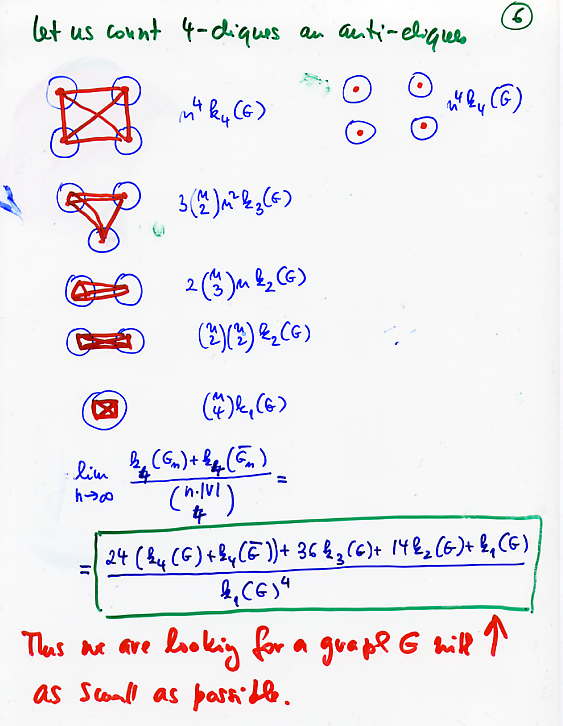 6
Let us count 4-cliques an anti-cliques
n⁴k₄(G)
n⁴k₄(G̅)
3(n 2)n²k₃(G)
2(n 3)n k₂(G)
(n 2)(n 2)k₂(G)
(n 4)k₁(G)
lim n→∞ k₄(Gₙ)+k₄(G̅ₙ) / (n·|V| 4) =
= 24(k₄(G)+k₄(G̅))+36k₃(G)+14k₂(G)+k₁(G) / k₁(G)⁴
Thus we are looking for a graph G with ↑
as small as possible.